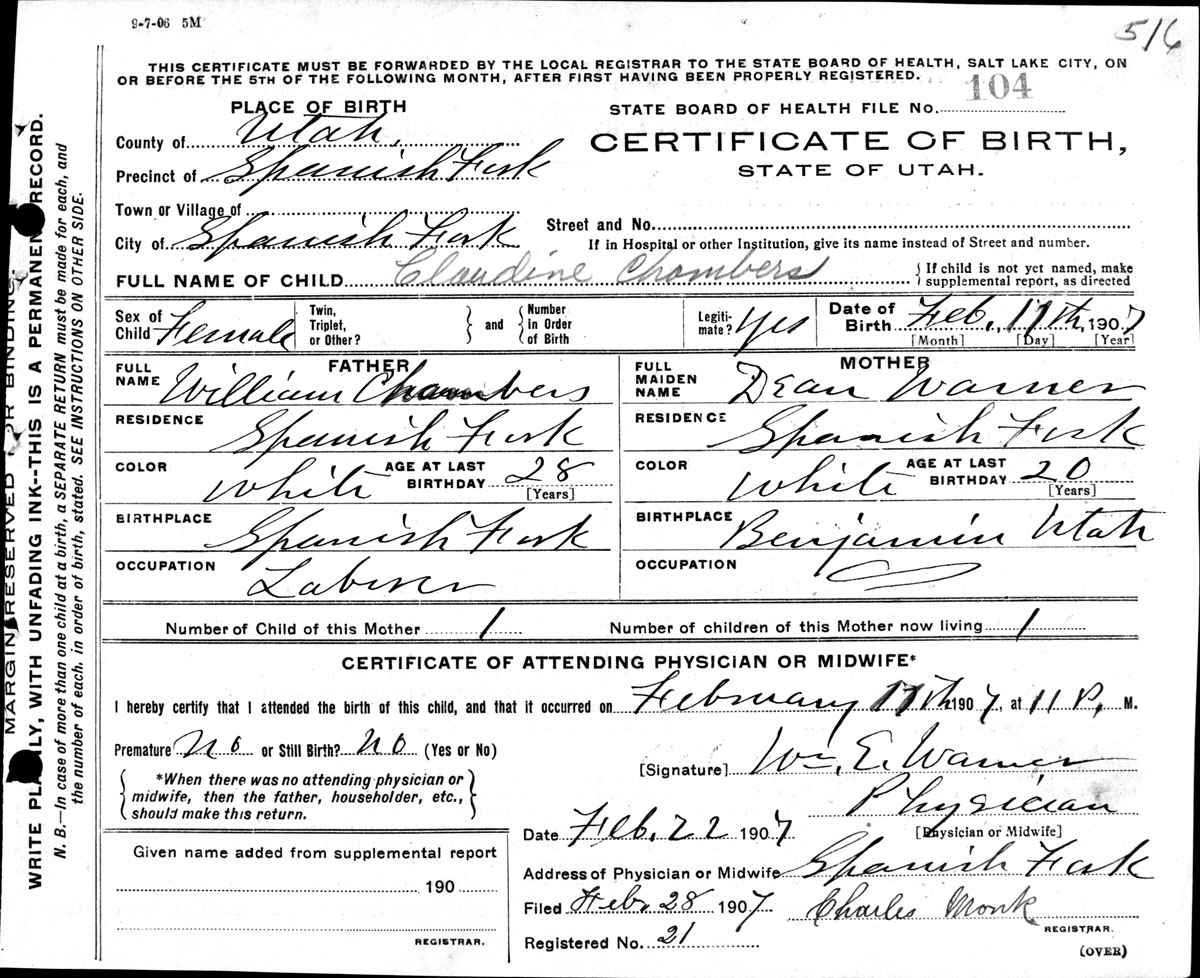 9-7-06 5M
516
THIS CERTIFICATE MUST BE FORWARDED BY THE LOCAL REGISTRAR TO THE STATE BOARD OF HEALTH, SALT LAKE CITY, ON
OR BEFORE THE 5TH OF THE FOLLOWING MONTH, AFTER FIRST HAVING BEEN PROPERLY REGISTERED.
PLACE OF BIRTH
STATE BOARD OF HEALTH FILE No. 104
County of Utah,
CERTIFICATE OF BIRTH,
Precinct of Spanish Fork
STATE OF UTAH.
Town or Village of
Street and No.
City of Spanish Fork
If in Hospital or other Institution, give its name instead of Street and number.
FULL NAME OF CHILD Claudine Chambers
If child is not yet named, make
supplemental report, as directed
Sex of Child Female
Twin, Triplet, or Other?
and
Number in Order of Birth
Legiti-mate? Yes
Date of Birth Feb. 17th, 1907
[Month] [Day] [Year]
FATHER
FULL NAME William Chambers
MOTHER
FULL MAIDEN NAME Dean Warner
RESIDENCE Spanish Fork
RESIDENCE Spanish Fork
COLOR White AGE AT LAST BIRTHDAY 28 [Years]
COLOR White AGE AT LAST BIRTHDAY 20 [Years]
BIRTHPLACE Spanish Fork
BIRTHPLACE Benjamin Utah
OCCUPATION Laborer
OCCUPATION
Number of Child of this Mother 1 Number of children of this Mother now living 1
CERTIFICATE OF ATTENDING PHYSICIAN OR MIDWIFE*
I hereby certify that I attended the birth of this child, and that it occurred on February 17th 1907, at 11 P. M.
Premature No or Still Birth? No (Yes or No)
[Signature] Wm. E. Warner
*When there was no attending physician or
midwife, then the father, householder, etc.,
should make this return.
Physician
[Physician or Midwife]
Date Feb. 22 1907
Given name added from supplemental report
190
REGISTRAR.
Address of Physician or Midwife Spanish Fork
Filed Feb. 28 1907 Charles Monk
REGISTRAR.
Registered No. 21
(OVER)
MARGIN RESERVED FOR BINDING.
WRITE PLAINLY, WITH UNFADING INK--THIS IS A PERMANENT RECORD.
N. B.—In case of more than one child at a birth, a SEPARATE RETURN must be made for each, and
the number of each, in order of birth, stated. SEE INSTRUCTIONS ON OTHER SIDE.